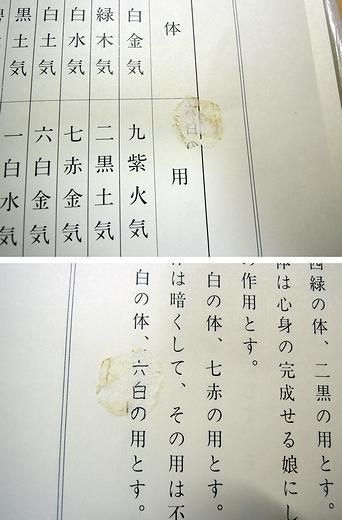 体 用
白金気 九紫火気
緑木気 二黒土気
白水気 七赤金気
白土気 六白金気
黒土気 一白水気
緑の体、二黒の用とす。
体は心身の完成せる娘にし
の作用とす。
白の体、七赤の用とす。
は暗くして、その用は不
白の体、六白の用とす。